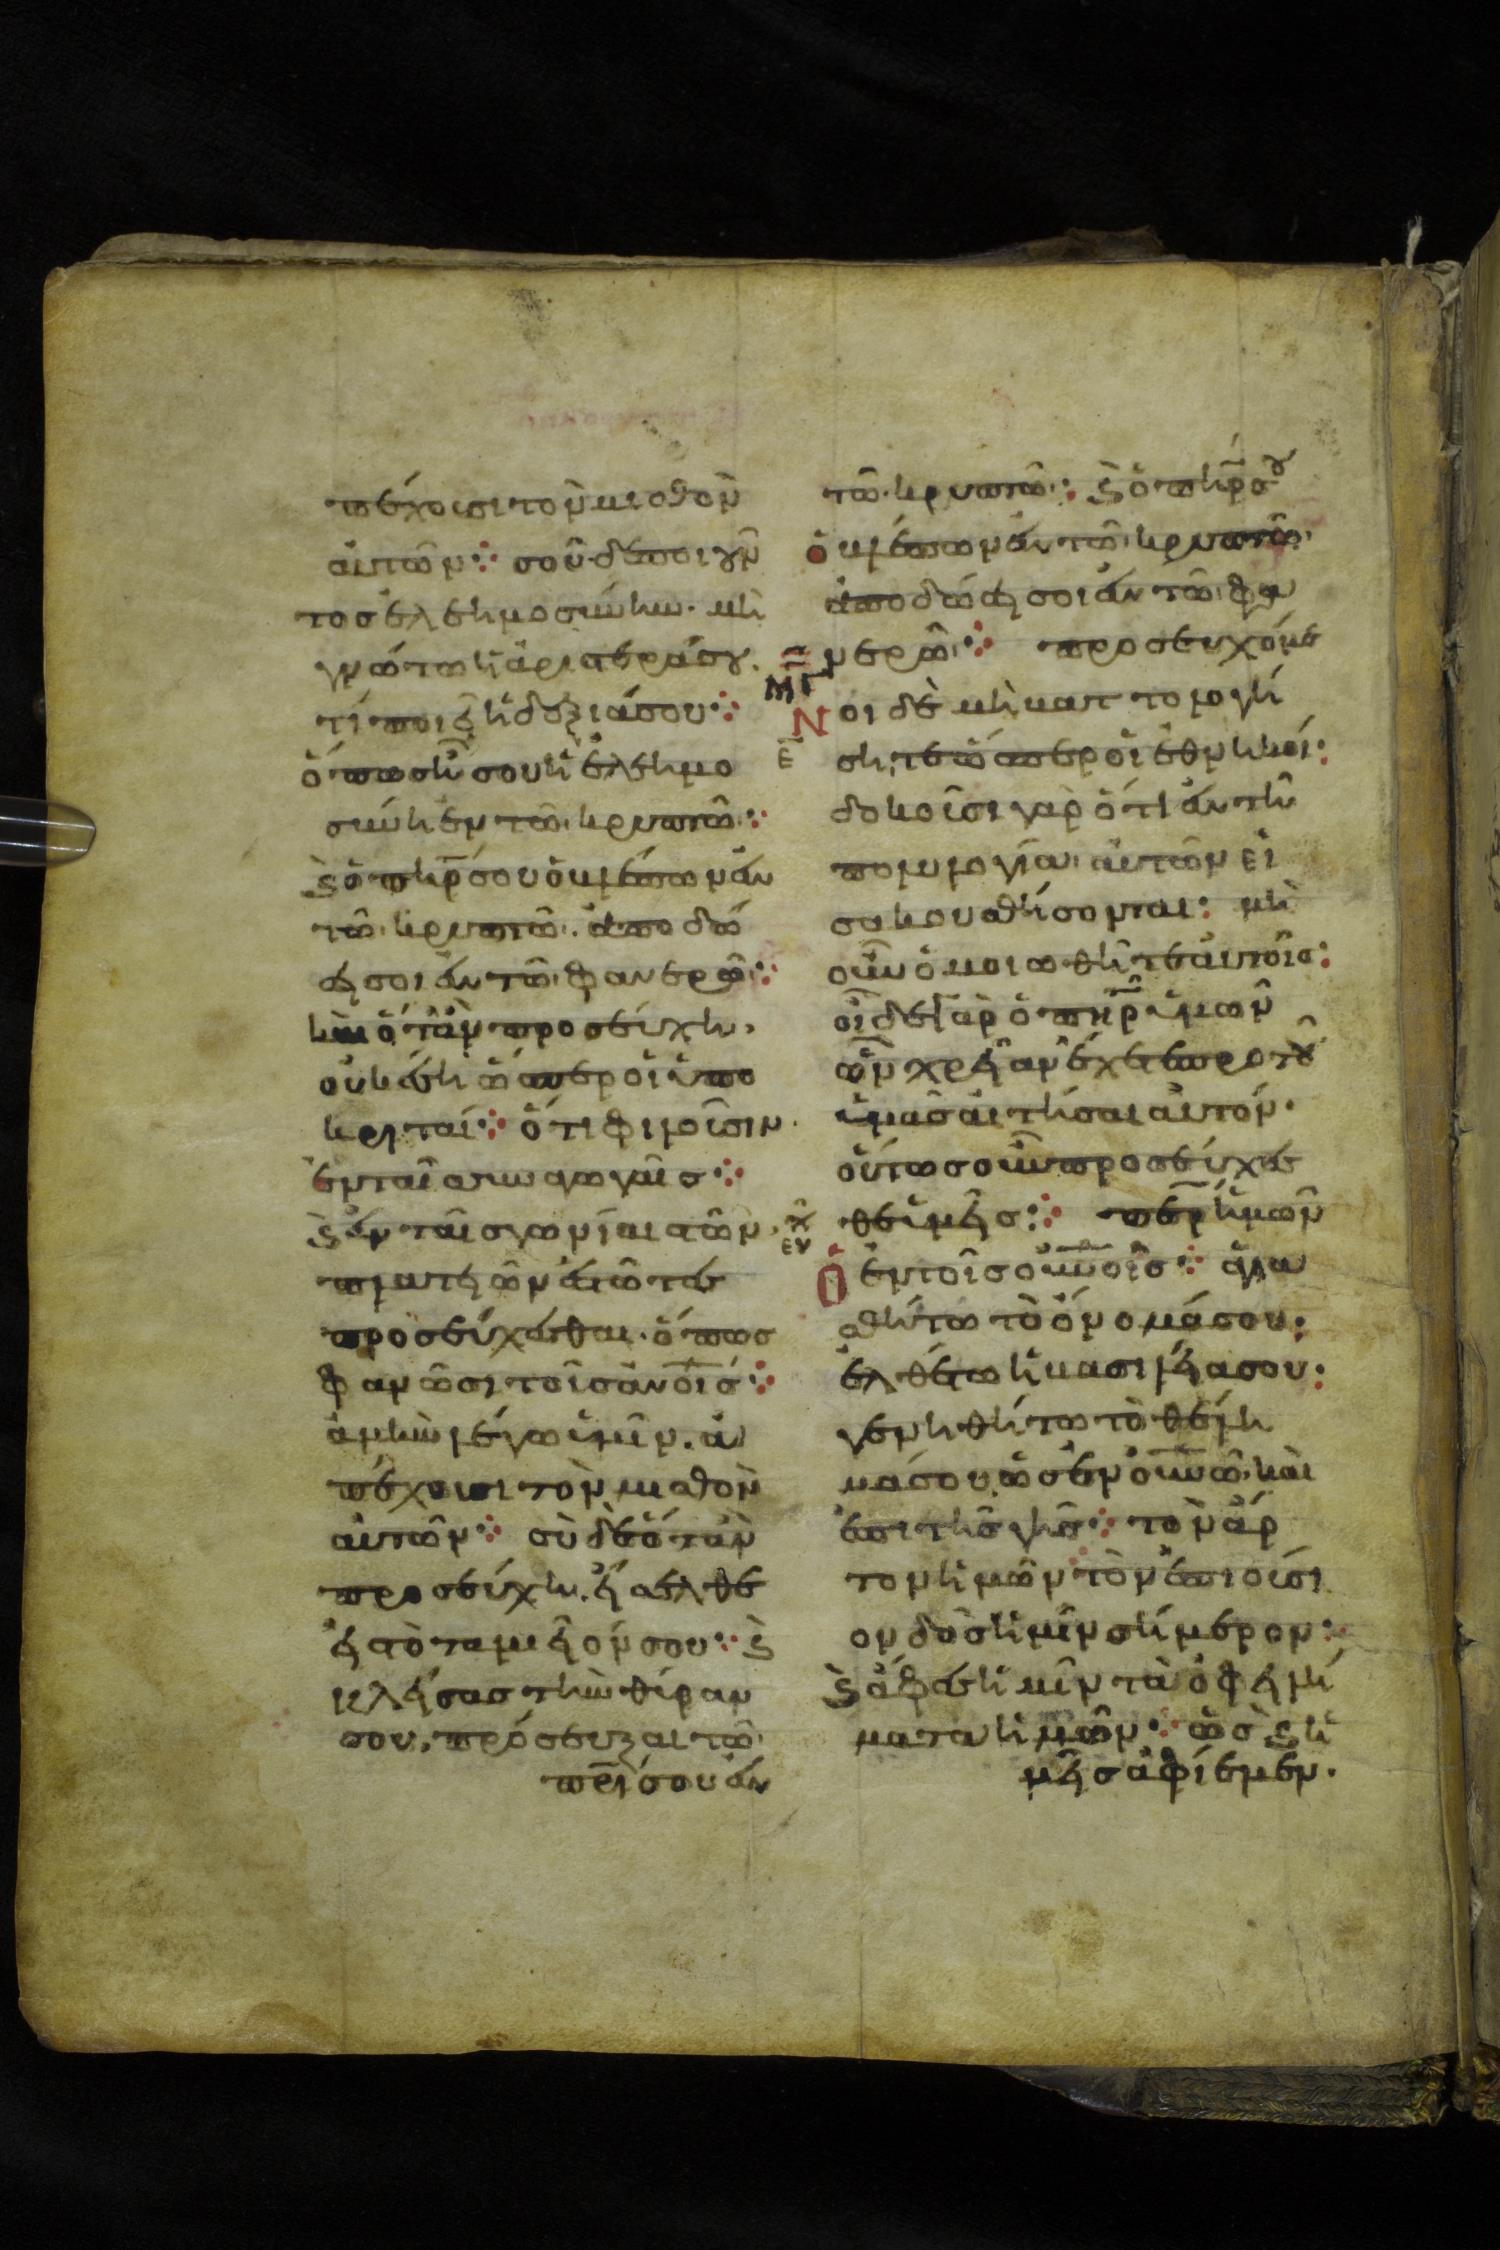 πέχουσι τὸν μισθὸν
ἀυτῶν⁘ σοῦ δέ ποιοῦν
τος ἐλεημοσύνην· μὴ
γνώτω ἡ ἀριστεράσου.
τί ποιεῖ ἡ δεξιάσου⁘
ὅπως ἦν σου ἡ ἐλεημο
σύνη ἐν τῶ κρυπτῶ⁘
ϗ ὁ πηρ̅ σου ὁ βλέπων ἐν
τῶ κρυπτῶ. ἀποδώ
σει σοι ἐν τῶ φανερῶ⁘
καὶ ὅταν προσέυχη,
οὐκ έση ὥσπερ οἱ ὑπο
κριταί⁘ ὅτι φιλοῦσιν.
ἐν ταῖ συναγωγαῖς⁘
ϗ ἐν ταῖς γωνίαις τῶν
πλατειῶν ἑστῶτες
προσέυχεσθαι· ὅπως
φανῶσι τοῖς ἀνοι̅ς⁘
ἀμὴν λέγω ὑμῖν. ἀ
πέχουσι τὸν μισθὸν
ἀυτῶν⁘ σὺ δὲ ὅταν
προσέυχη, εἴσελθε
εἰς τὸ ταμιεῖον σου⁘ ϗ
κλείσας τὴν θύραν
σου, πρόσευξαι τῶ
πρι̅ σου ἐν
τῶ κρυπτῶ⁘ ϗ ὁ πηρ̅ σου
ὁ βλέπων ἐν τῶ κρυπτῶ
ἀποδώσει σοι ἐν τῶ φα
νερῶ⁘ προσευχόμε
ΜΓ
Νοι δὲ μὴ βαττολογή
Ε σητε ὥσπερ οἱ ἐθνικοί:
δοκοῦσι γὰρ ὅτι ἐν τῆ
πολυλογία ἀυτῶν εἰ
σακουσθήσονται: μὴ
οὖν ὁμοιωθῆτε ἀυτοῖς:
οἶδε γὰρ ὁ πηρ̅ ὑμῶν
ὧν χρείαν ἔχετε προ τοῦ
ὑμᾶς ἀιτήσαι ἀυτόν·
οὕτως οὖν προσέυχεσ
θε ὑμεῖς⁘ περ̅ ἡμῶν
Ὁ ἐν τοῖς οὐνοι̅ς⁘ ἁγια
σθήτω τὸ ὄνομάσου:
ἐλθέτω ἡ βασιλείασου:
γενηθήτω τὸ θέλη
μάσου, ὡς ἐν οὐνω̅. καὶ
ἐπι τῆς γῆς⁘ τὸν ἄρ
τον ἡμῶν τὸν ἐπιούσι
ον δὸς ἡμῖν σήμερον⁘
ϗ ἄφες ἡμῖν τὰ ὀφειλή
ματα ἡμῶν⁘ ὡς ϗ ἡ
μεῖς ἀφίεμεν.